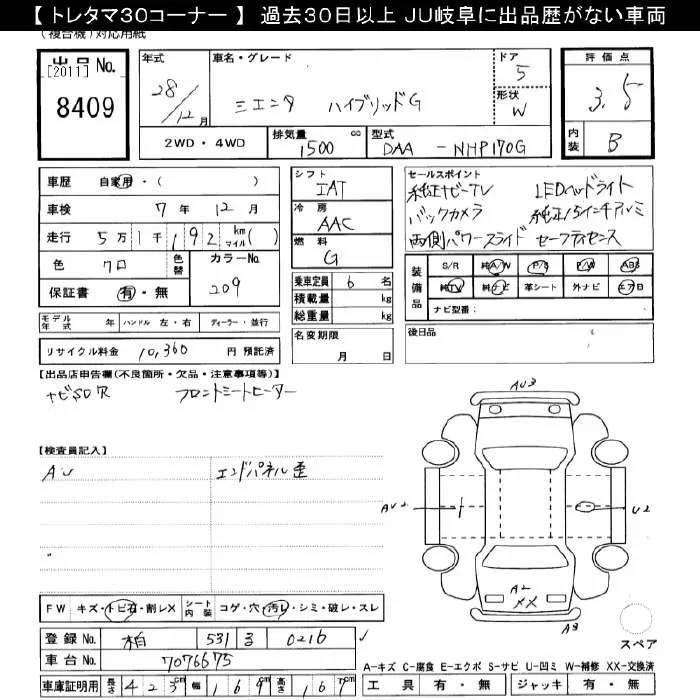 【 トレタマ30コーナー 】 過去30日以上 JU岐阜に出品歴がない車両
(複合機)対応用紙
出品 No.
[2011]
8409
年式
28/12月
車名・グレード
シエンタ ハイブリッドG
ドア
5
形状
W
評価点
3.5
内装
B
2WD・4WD
排気量
1500 cc
型式
DAA - NHP170G
車歴 自家用・( )
車検 7年 12月
走行 5万1千192 km マイル( )
色 クロ
色替
カラーNo. 209
保証書 有・無
シフト
IAT
冷房
AAC
燃料
G
乗車定員 6 名
積載量 kg
総重量 kg
名変期限
月 日
セールスポイント
純正ナビTV LEDヘッドライト
バックカメラ 純正15インチアルミ
両側パワースライド セーフティセンス
装備品
S/R 純A/W P/S P/W ABS
純TV 純ナビ 革シート 外ナビ エアB
ナビ型番:
後日品
モデル年式 年 ハンドル 左・右 ディーラー・並行
リサイクル料金 10,360 円 預託済
【出品店申告欄(不良箇所・欠品・注意事項等)】
ナビSD欠 フロントシートヒーター
【検査員記入】
AU エンドパネル歪
AU3
AU2
U2
A2
XX
A3
スペア
FW キズ・トビ石・割レX シート内装 コゲ・穴・汚レ・シミ・破レ・スレ
登録 No. 柏 531 る 0216
車台 No. 7076675
車庫証明用 長さ 423cm 幅 169cm 高さ 167cm
A-キズ C-腐食 E-エクボ S-サビ U-凹ミ W-補修 XX-交換済
工具 有・無 ジャッキ 有・無